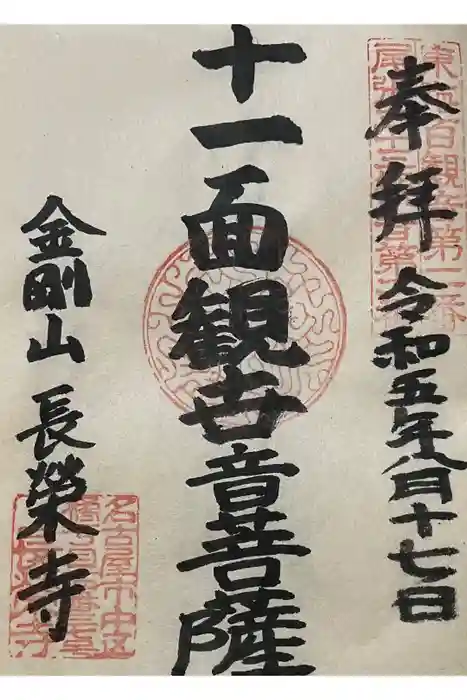 奉拝 令和五年八月十七日
十一面観世音菩薩
金剛山 長榮寺
東海百観音第
尾張三十三観音第
名古屋市中区